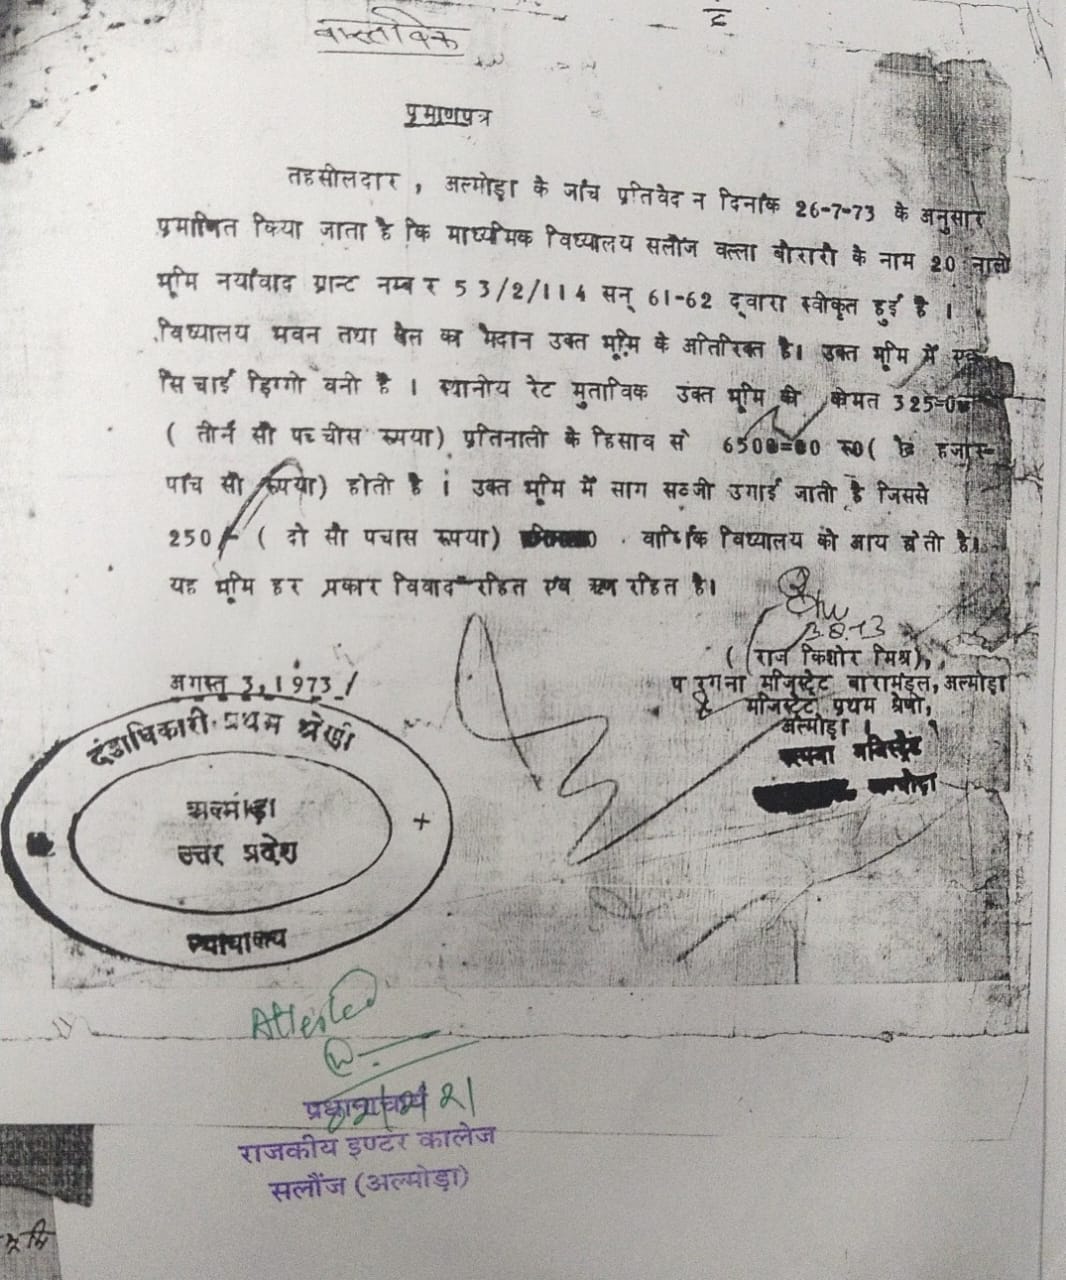 वास्तविक
प्रमाणपत्र
तहसीलदार , अल्मोड़ा के जांच प्रतिवेदन दिनांक 26-7-73 के अनुसार
प्रमाणित किया जाता है कि माध्यमिक विध्यालय सलौंज वल्ला बौरारौ के नाम 20 नाली
भूमि नयाँवाद ग्रान्ट नम्बर 53/2/114 सन् 61-62 द्वारा स्वीकृत हुई है ।
विध्यालय भवन तथा खेल का मैदान उक्त भूमि के अतिरिक्त है। उक्त भूमि में एक
सिचाई डिग्गी बनी है । स्थानीय रेट मुताविक उक्त भूमि की कीमत 325=00
( तीन सौ पच्चीस रूपया) प्रतिनाली के हिसाव से 6500=00 रू0( छै हजार-
पांच सौ रूपया) होती है । उक्त भूमि में साग सब्जी उगाई जाती है जिससे
250/- ( दो सौ पचास रूपया) वार्षिक विध्यालय को आय होती है।
यह भूमि हर प्रकार विवाद रहित एवं ऋण रहित है।
3.8.73
( राज किशोर मिश्र),
परगना मजिस्ट्रेट बारामंडल, अल्मोड़ा
अगस्त 3,1973/
मजिस्ट्रेट प्रथम श्रेणी,
अल्मोड़ा ।
परगना मजिस्ट्रेट
अल्मोड़ा
दंडाधिकारी प्रथम श्रेणी
अल्मोड़ा
उत्तर प्रदेश
+
न्यायालय
Attested
प्रधानाचार्य
राजकीय इण्टर कालेज
सलौंज (अल्मोड़ा)
भूमि